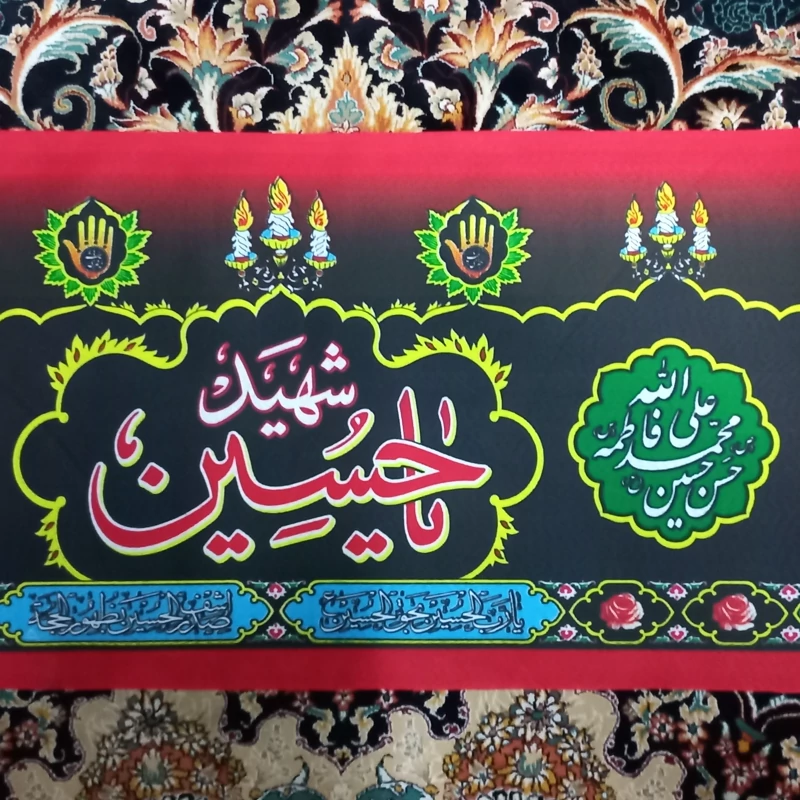 شهید
یا حسین
الله
علی
محمد فاطمه
حسن حسین
یا رب الحسین بحق الحسین
اشف صدر الحسین بظهور الحجة